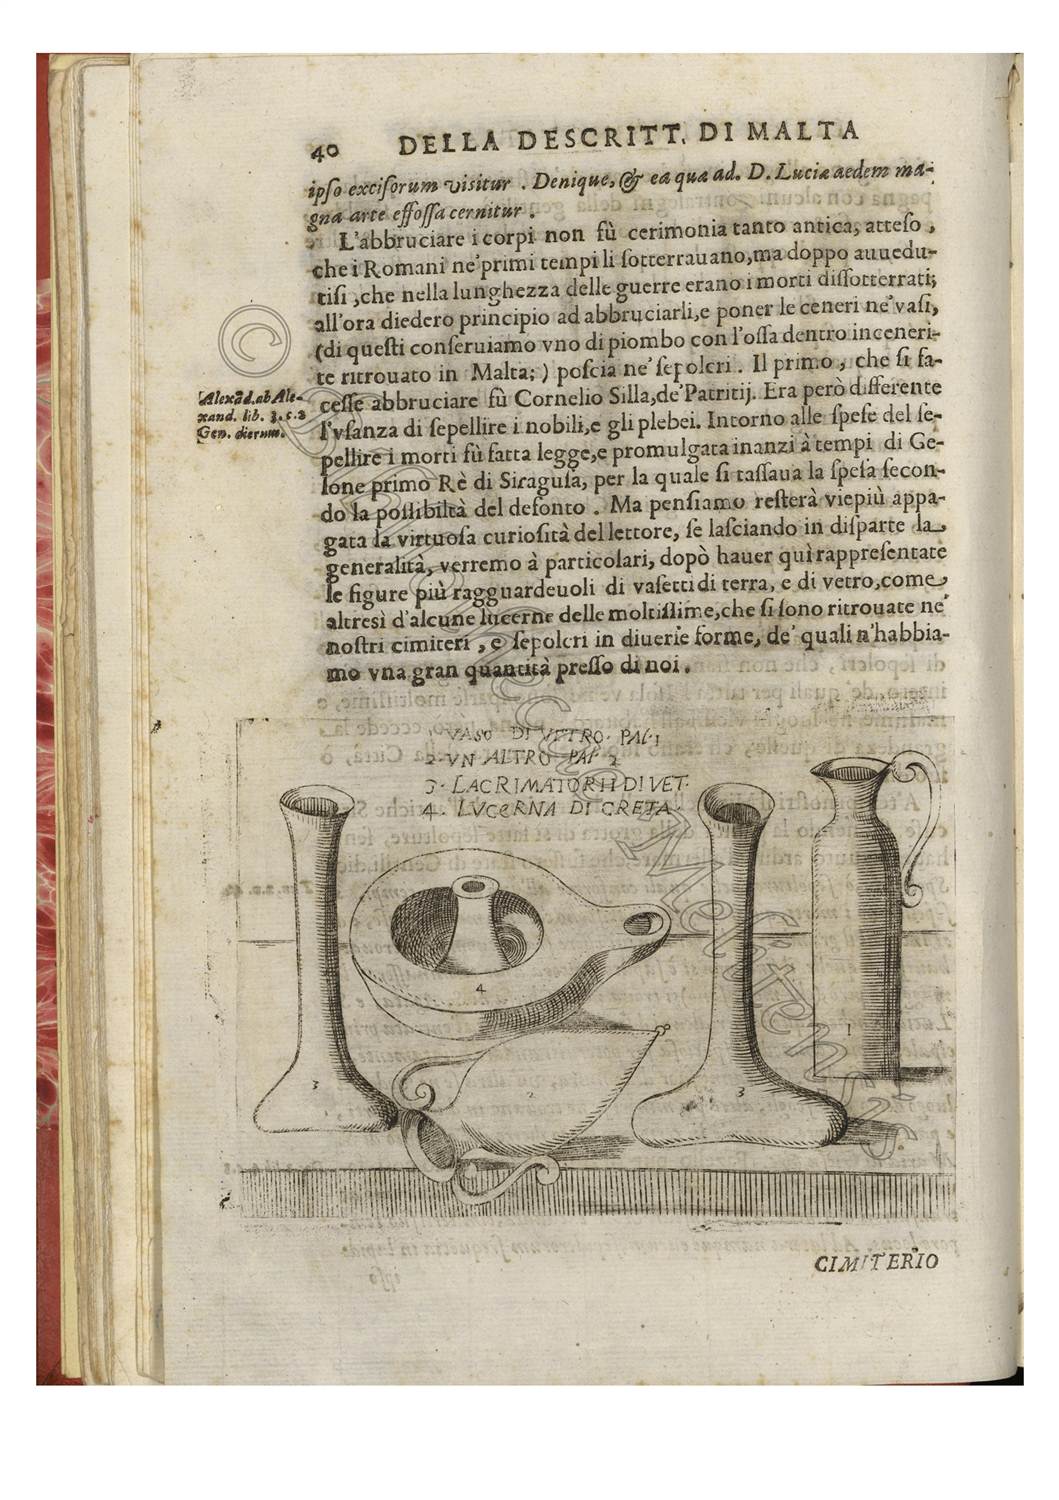 40 DELLA DESCRITT. DI MALTA
ipso exciſorum viſitur . Denique, & ea qua ad. D. Luciæ aedem ma-
gna arte effoſſa cernitur .
L'abbruciare i corpi non fù cerimonia tanto antica, atteſo ,
che i Romani ne' primi tempi li ſotterrauano, ma doppo auuedu-
tiſi , che nella lunghezza delle guerre erano i morti diſſotterrati;
all'ora diedero principio ad abbruciarli, e poner le ceneri ne' vaſi,
(di queſti conſeruiamo vno di piombo con l'oſſa dentro inceneri-
te ritrouato in Malta; ) poſcia ne' ſepolcri . Il primo , che ſi fa-
ceſſe abbruciare fù Cornelio Silla, de' Patritij. Era però differente
l'vſanza di ſepellire i nobili, e gli plebei. Intorno alle ſpeſe del ſe-
pellire i morti fù fatta legge, e promulgata inanzi à tempi di Ge-
lone primo Rè di Siraguſa, per la quale ſi taſſaua la ſpeſa ſecon-
do la poſſibiltà del defonto . Ma penſiamo reſterà viepiù appa-
gata la virtuoſa curioſità del lettore, ſe laſciando in diſparte la
generalità, verremo à particolari, dopò hauer quì rappreſentate
le figure più ragguardeuoli di vaſetti di terra, e di vetro, come
altresì d'alcune lucerne delle moltiſſime, che ſi ſono ritrouate ne'
noſtri cimiteri , e ſepolcri in diuerſe forme, de' quali n'habbia-
mo vna gran quantità preſſo di noi .
Alexãd. ab Ale-
xand. lib. 3. c. 2
Gen. dierum.
1 VASO DI VETRO. PAL. 1
2. VN ALTRO PAL. 2
3. LACRIMATORII DI VET.
4. LVCERNA DI CRETA.
4
1
3
2
3
CIMITERIO
© Bibliotheca Melitensis